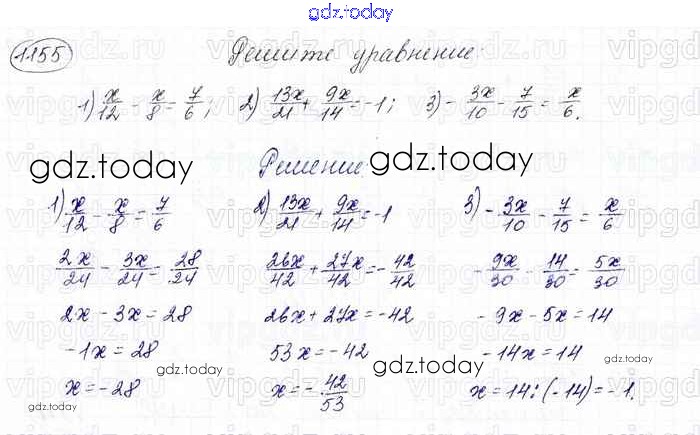 gdz.today
1155 Решите уравнение:
1) x/12 - x/8 = 7/6; 2) 13x/21 + 9x/14 = -1; 3) - 3x/10 - 7/15 = x/6.
gdz.today Решение: gdz.today
1) x/12 - x/8 = 7/6
2x/24 - 3x/24 = 28/24
2x - 3x = 28
-1x = 28
x = -28
2) 13x/21 + 9x/14 = -1
26x/42 + 27x/42 = -42/42
26x + 27x = -42
53x = -42
x = - 42/53
3) - 3x/10 - 7/15 = x/6
- 9x/30 - 14/30 = 5x/30
- 9x - 5x = 14
- 14x = 14
x = 14 : (-14) = -1.
gdz.today
gdz.today
gdz.today